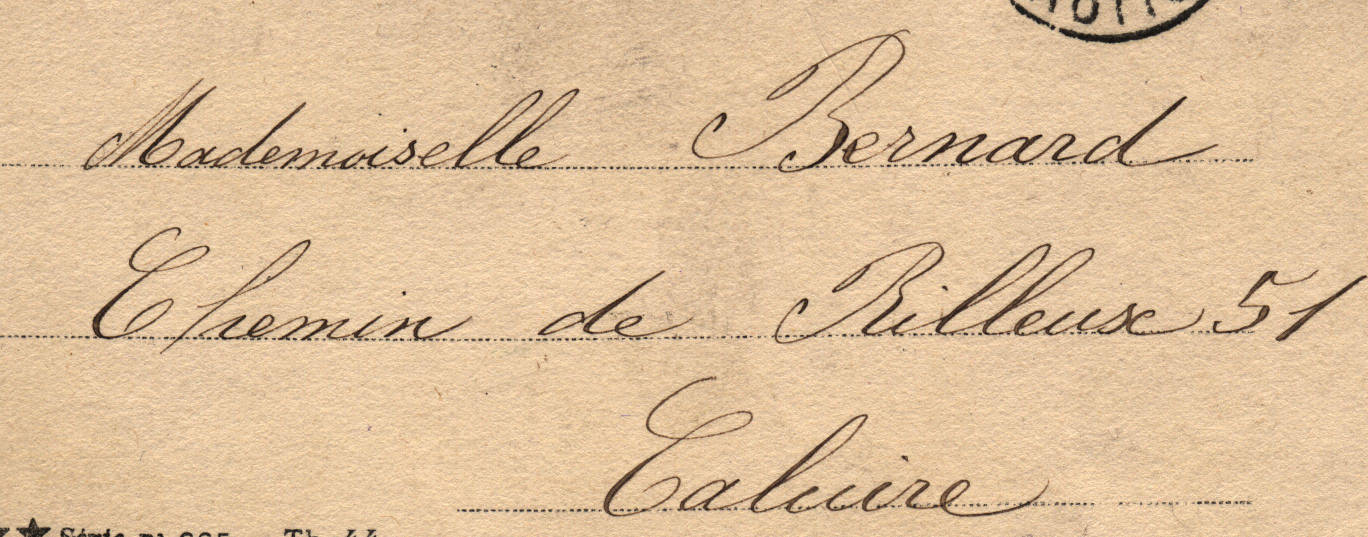 Mademoiselle Bernard
Chemin de Rilleux 51
Caluire
Série n°